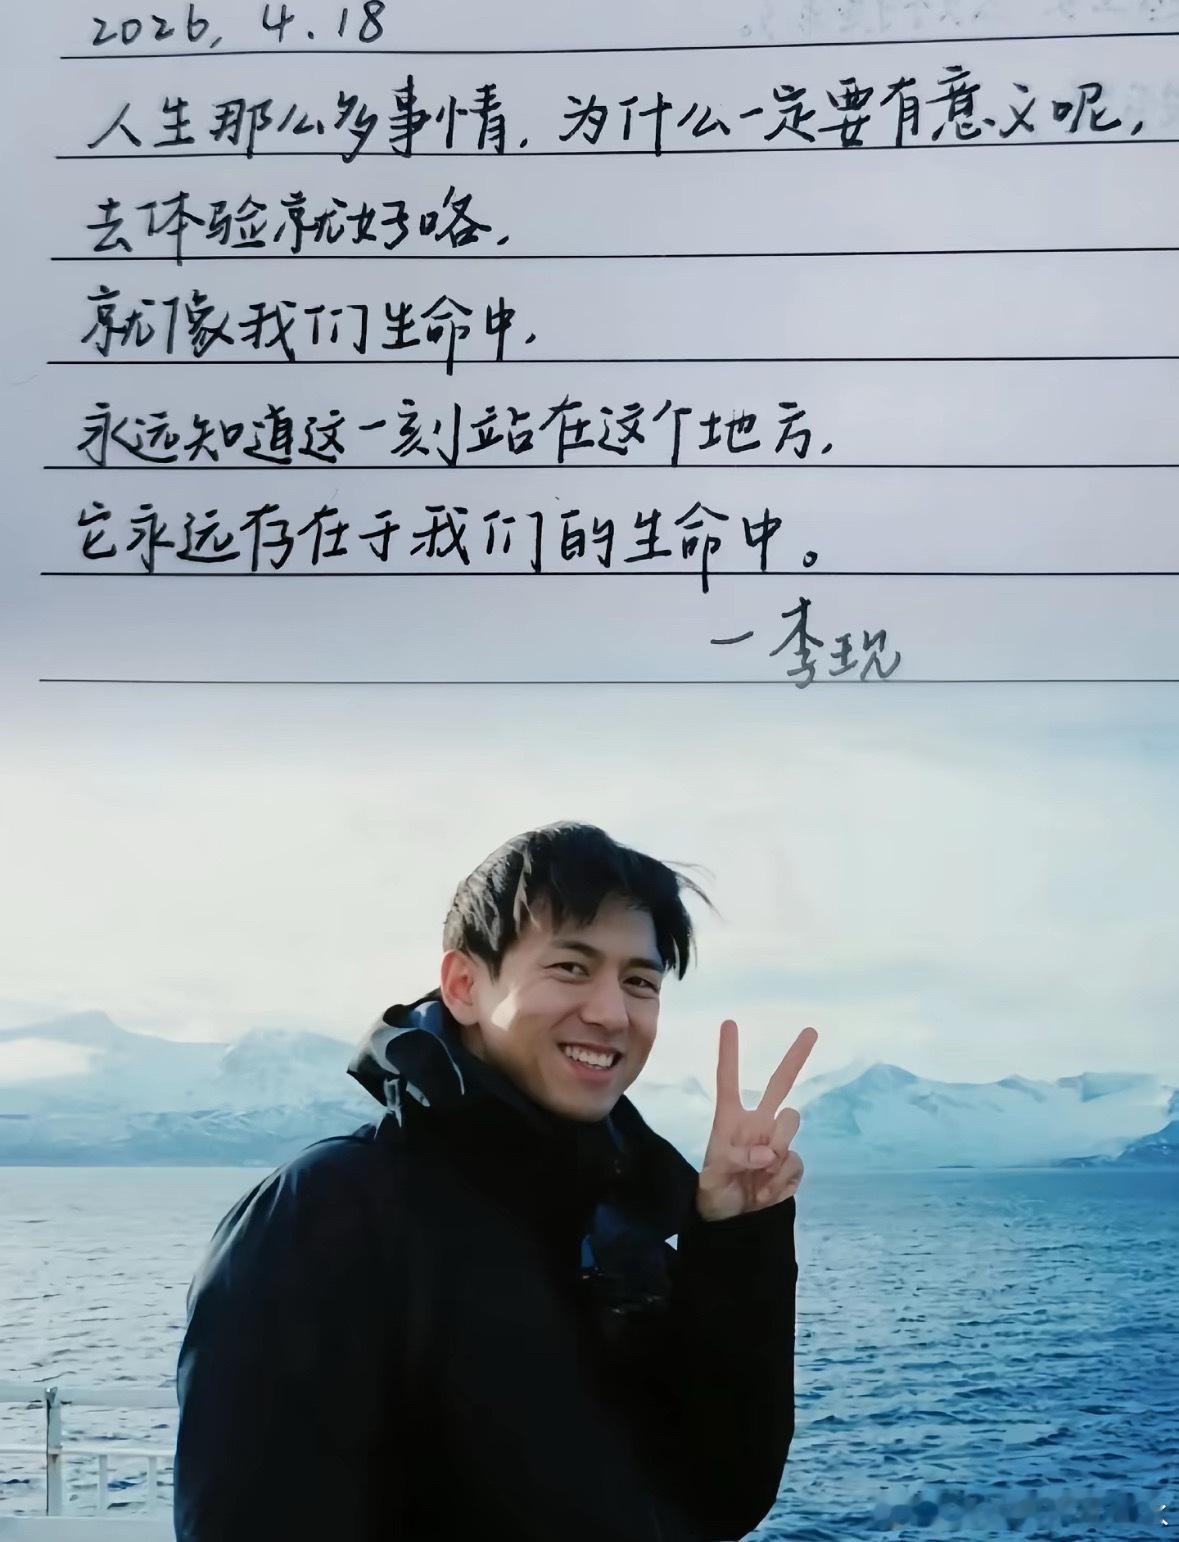 2026, 4.18
人生那么多事情，为什么一定要有意义呢，
去体验就好咯，
就像我们生命中，
永远知道这一刻站在这个地方，
它永远存在于我们的生命中。
—李现